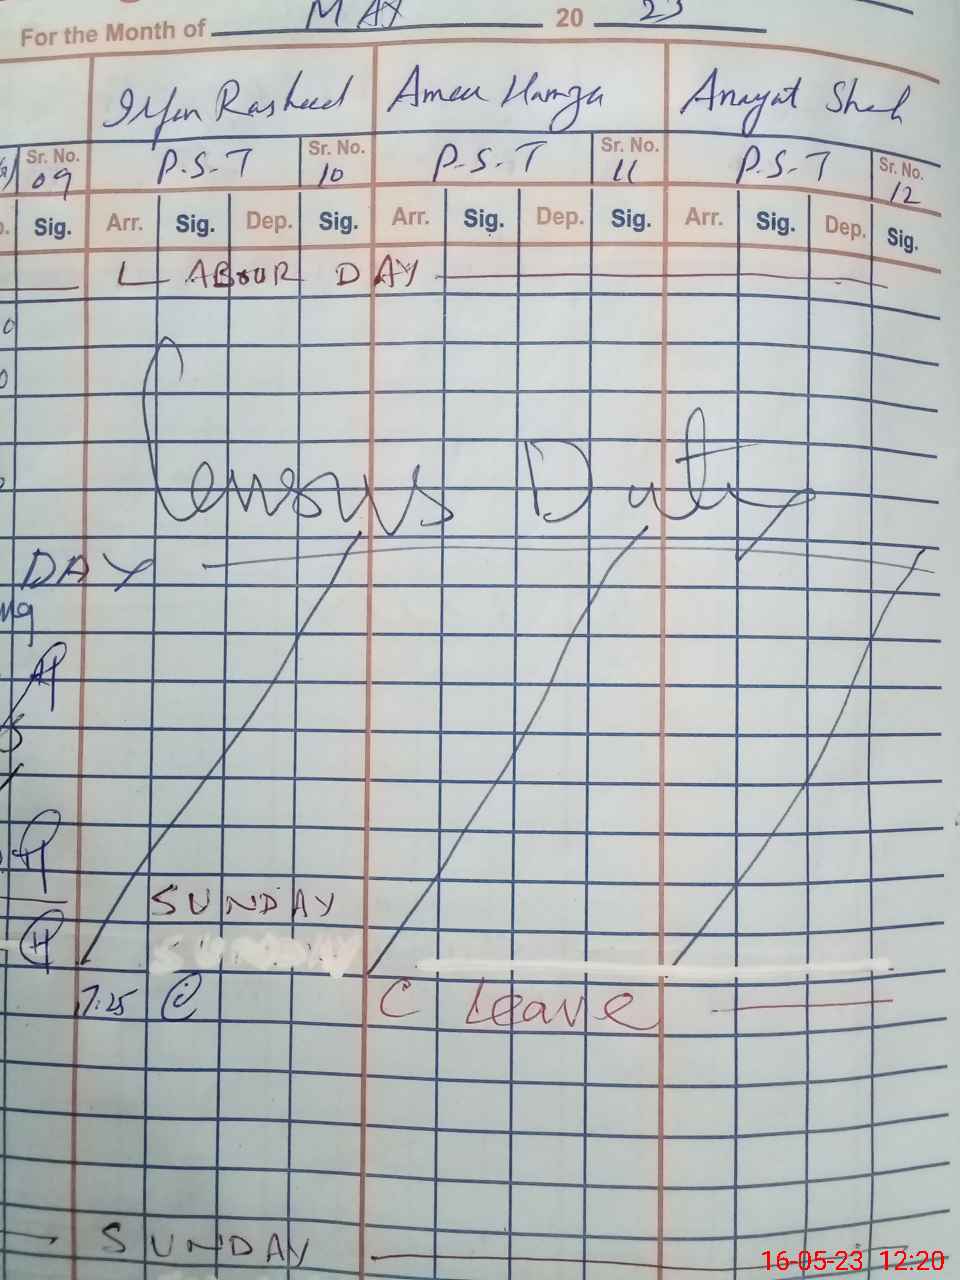 For the Month of MAY 20 23
Irfan Rasheed Ameer Hamza Anayat Shah
Sr. No. P.S.T Sr. No. P.S.T Sr. No. P.S.T Sr. No.
09 10 11 12
Sig. Arr. Sig. Dep. Sig. Arr. Sig. Dep. Sig. Arr. Sig. Dep. Sig.
LABOUR DAY
Census Duty
DAY
SUNDAY
SUNDAY
7:25 C Leave
SUNDAY
16-05-23 12:20